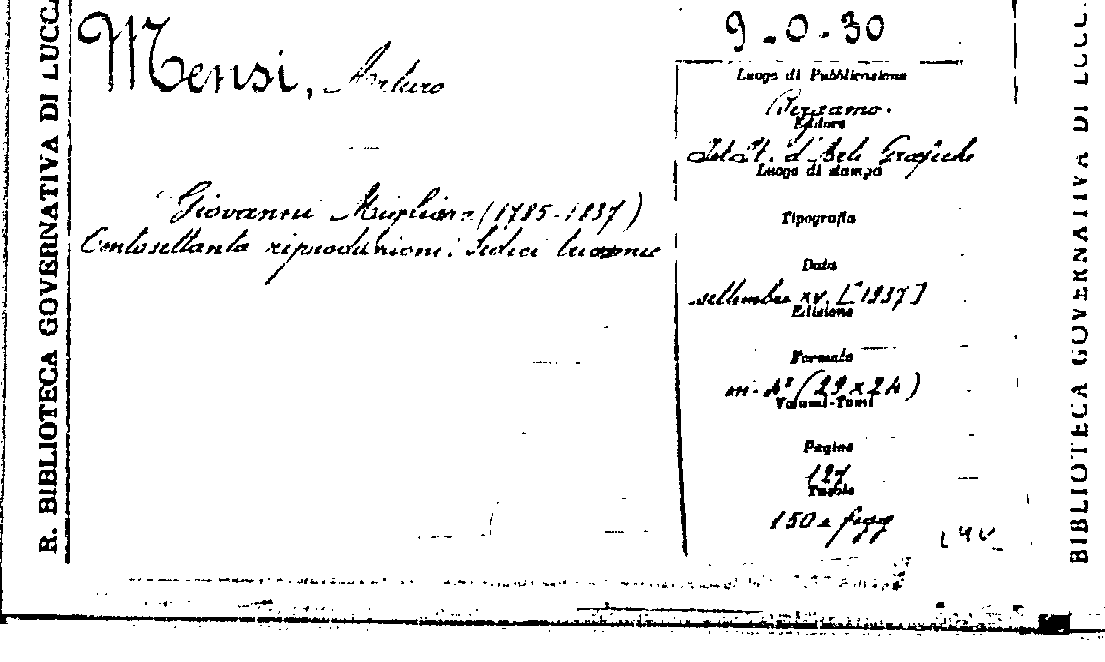 R. BIBLIOTECA GOVERNATIVA DI LUCCA
Mensi, Arturo
Giovanni Migliara (1785-1837)
Centosettanta riproduzioni. Sedici tricromie
9-0-30
Luogo di Pubblicazione
Bergamo.
Editore
Ist. It. d'Arti Grafiche
Luogo di stampa
Tipografia
Data
settembre XV. [1937]
Edizione
Formato
in-4° (29 x 24)
Volumi-Tomi
Pagine
127
Tavole
150 e figg
BIBLIOTECA GOVERNATIVA DI LUCC